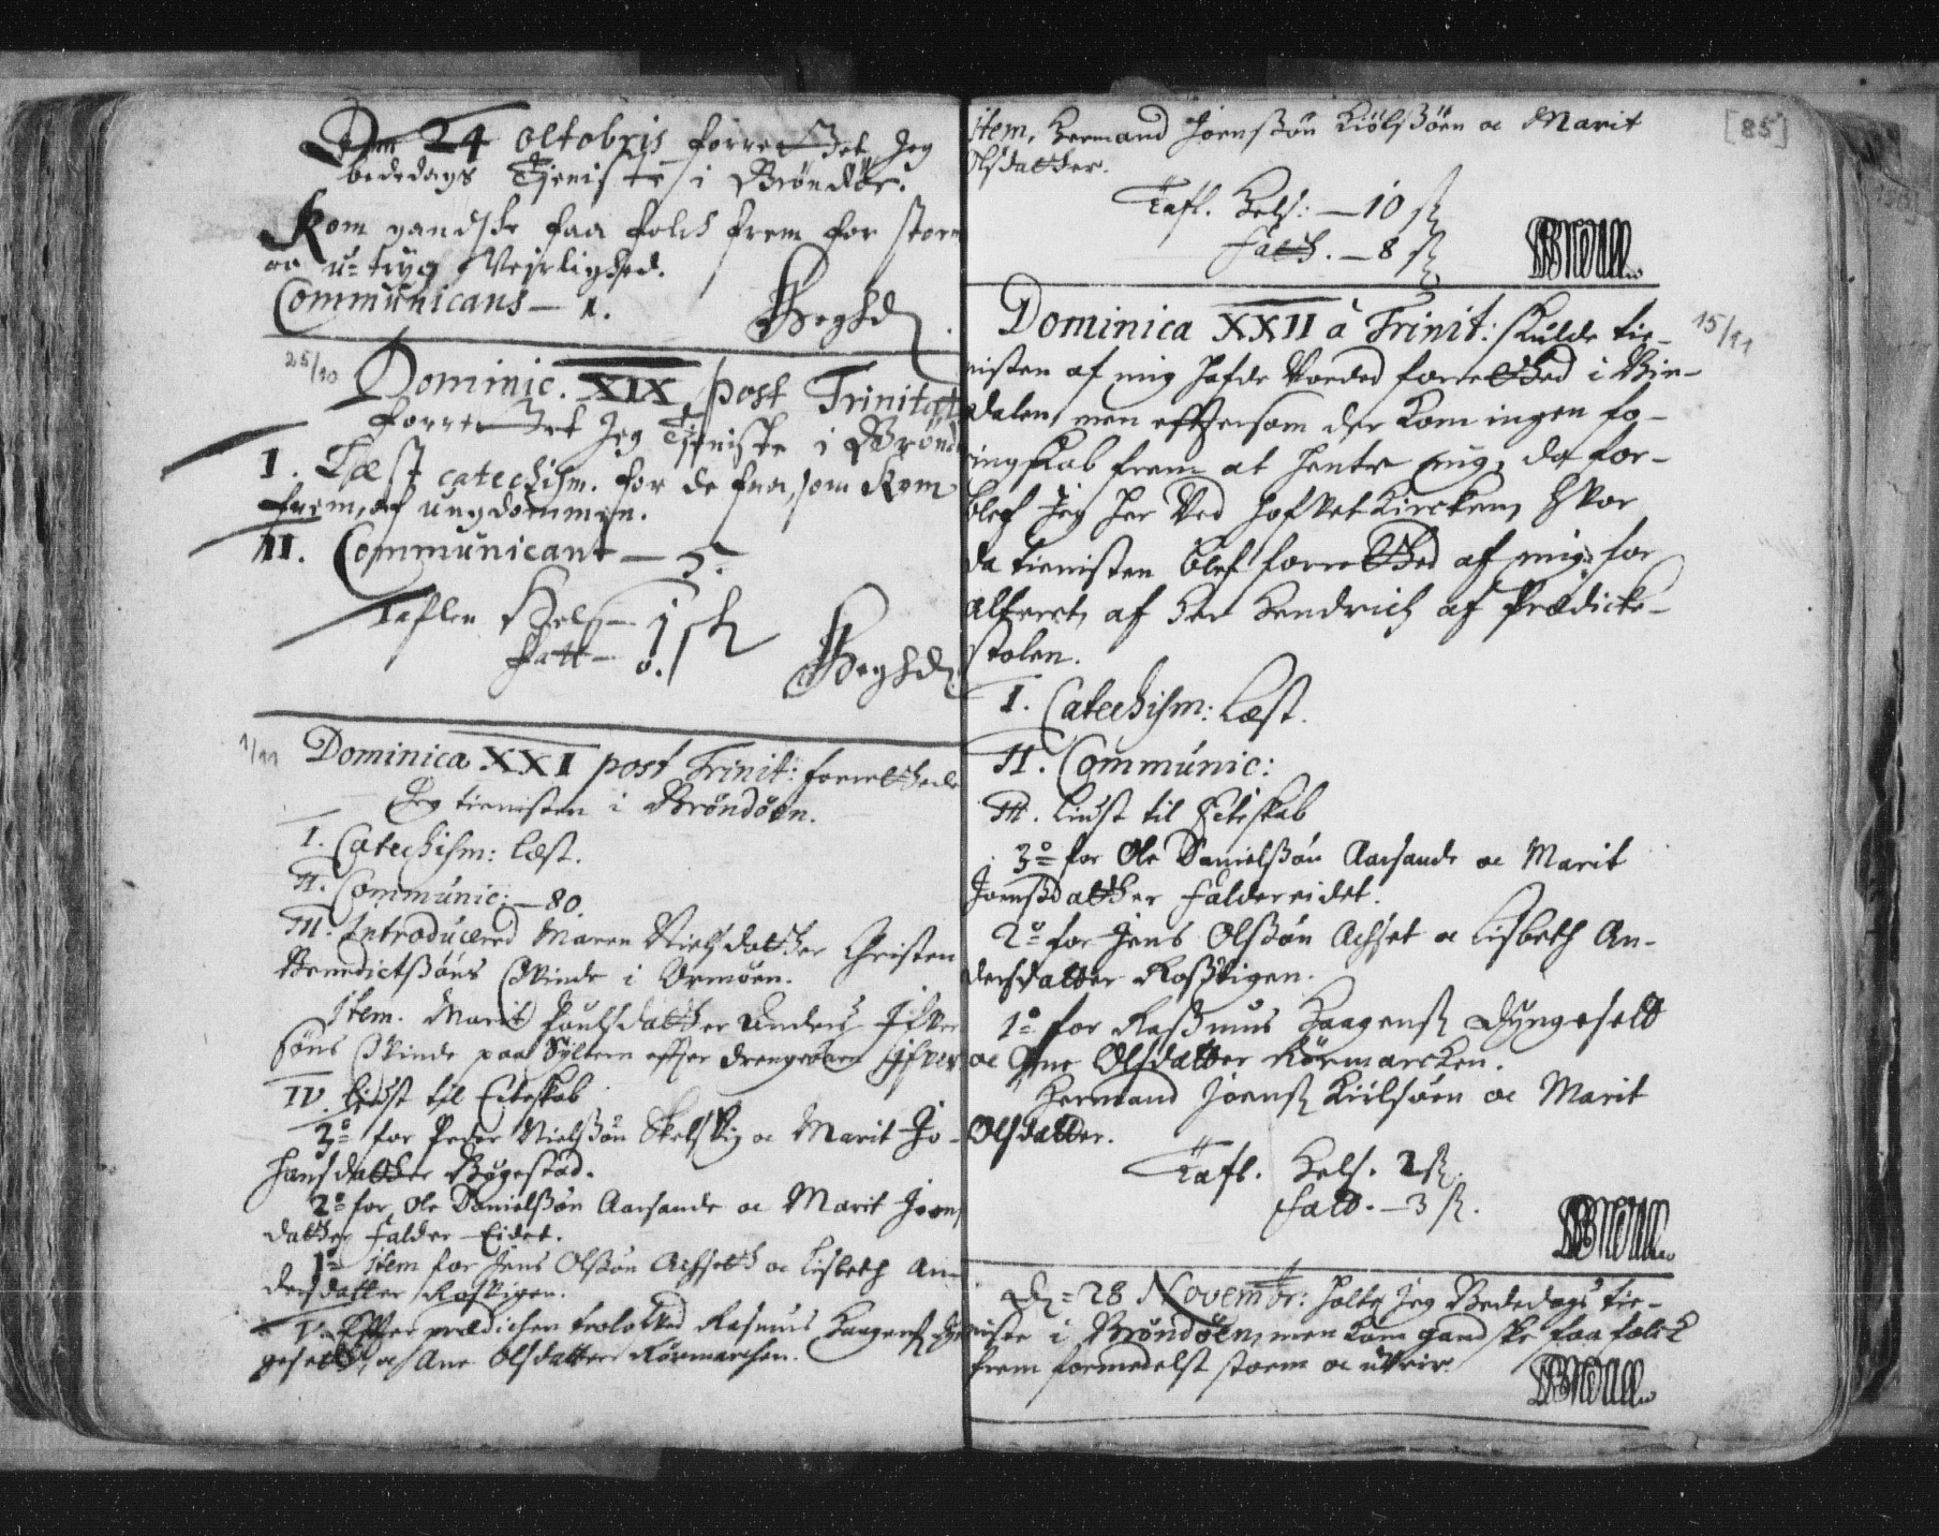 Dm 24 oktobris forrettet Jeg
bededags Tjeniste i Brøndøe.
Kom gandske faa folck frem for storm
oc u-tryg Veirlighed.
Communicans — 1.
25/10
Dominic. XIX post Trinitat
forrettet Jeg Tjeniste i Brønd
I. Læst catechism. for de faa, som kom
frem, af ungdommen.
II. Communicant — 5.
Taflen Hels —
Fatt —
1/11
Dominica XXI post Trinit: forrettede
Jeg tienisten i Brøndøen.
I. Catechism: læst.
II. Communic: — 80.
III. Introducered Maren Nielsdatter Christen
Benedictsøns Qvinde i Ormøen.
Item. Marit Poulsdatter Anders Ifver
søns Qvinde paa Sylten effter drengebarn Ifver
IV. liust til Ecteskab
3º for Peder Nielsøn Skelsvig oc Marit Jo-
hansdatter Bøgestad.
2º for Ole Danielsøn Aarsande oc Marit Joens
datter Falder-Eidet.
1º Item for Jens Olsøn Achseth oc Lisbeth An-
dersdatter Rosvigen.
V. Effter prædicken trolofved Rasmus Haagens Dyn
geselt oc Ane Olsdatter Rørmarcken.
[85]
Item, Hermand Joensøn Kiølsøen oc Marit
Olsdatter.
Tafl. Hels: — 10 ß
Fatt. — 8 ß
15/11
Dominica XXII à Trinit: skulde tie-
nisten af mig hafde Vorded forretted i Bin-
dalen, men effttersom der kom ingen fø-
ringskab frem at hente mig, da for-
blef Jeg her Ved hofvetkircken, hvor
da tienisten blef forretted af mig for
Alteret, af Her Hendrich af Prædicke-
stolen.
I. Catechism: læst.
II. Communic:
III. liust til Ecteskab
3º for Ole Danielsøn Aarsande oc Marit
Joensdatter Faldereidet.
2º for Jens Olsøn Achset oc Lisbeth An-
dersdatter Rosvigen.
1º for Rasmus Haagens Dyngeselt
oc Ane Olsdatter Rørmarcken.
Hermand Joens Kiilsøen oc Marit
Olsdatter.
Tafl. Hels. 2 ß.
Fatt. — 3 ß.
D. 28 Novembr: holte Jeg Bededags tie-
niste i Brøndøen, men kom gandske faa folck
frem formedelst storm oc uveir.